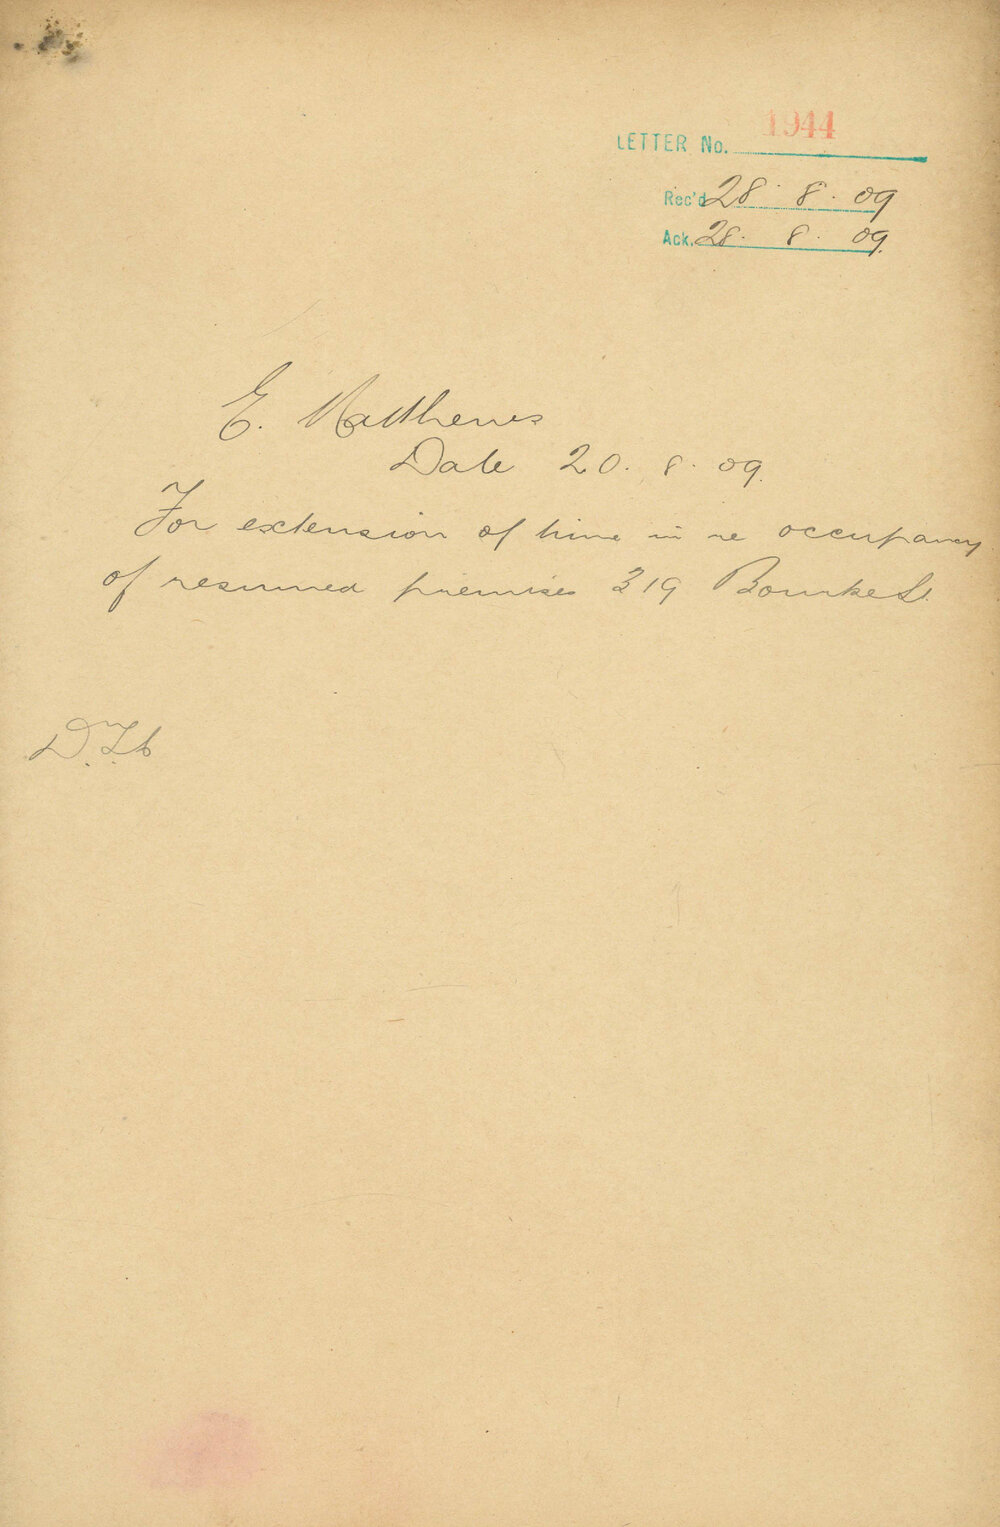 LETTER No. 1944
Rec'd 28. 8. 09
Ack. 28. 8. 09.
E. Matthews
Date 20. 8. 09.
For extension of time in re occupancy
of resumed premises 319 Bourke St.